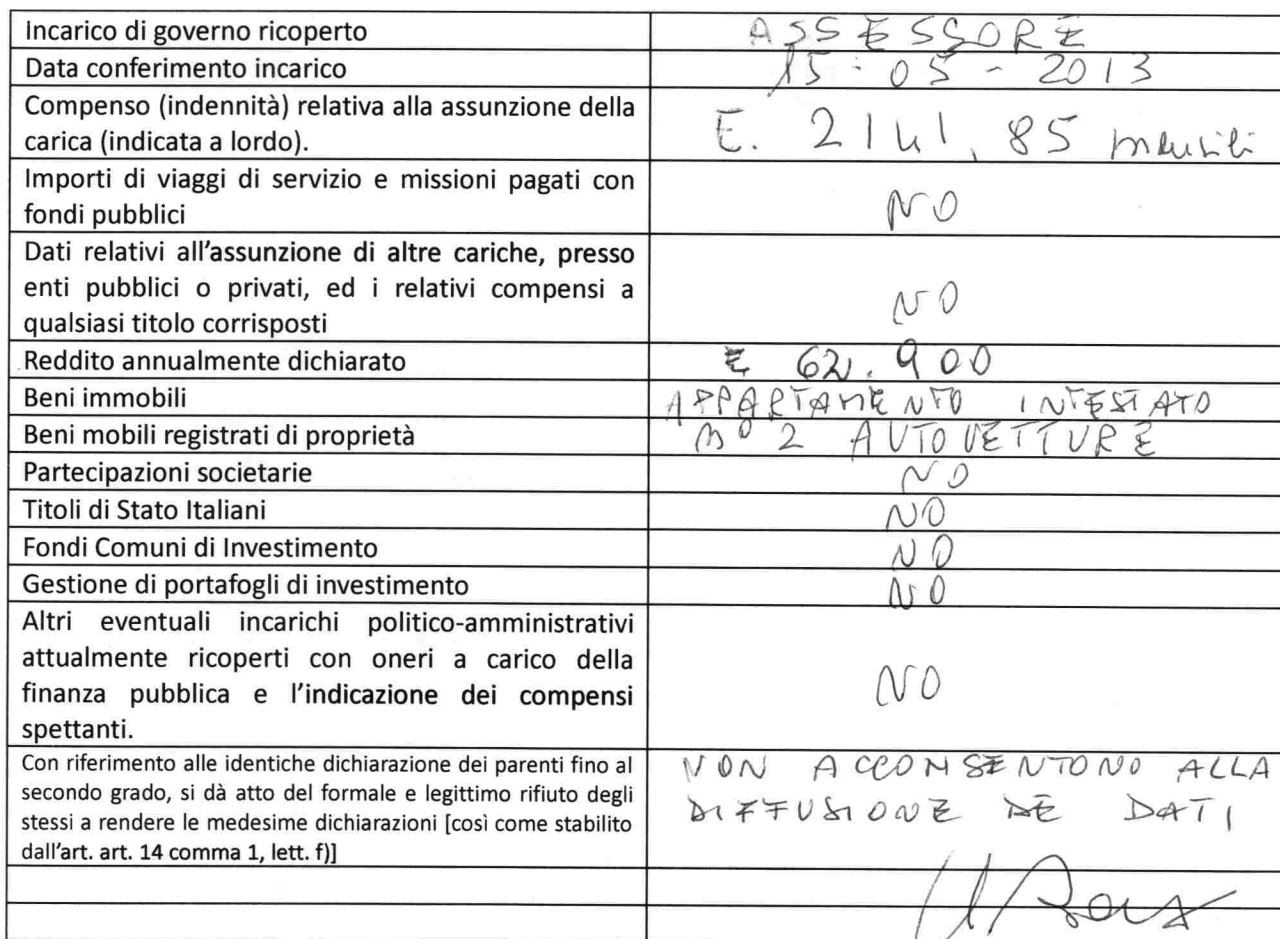 Incarico di governo ricoperto ASSESSORE
Data conferimento incarico 15-05-2013
Compenso (indennità) relativa alla assunzione della
carica (indicata a lordo).
E. 2141,85 mensili
Importi di viaggi di servizio e missioni pagati con
fondi pubblici
NO
Dati relativi all'assunzione di altre cariche, presso
enti pubblici o privati, ed i relativi compensi a
qualsiasi titolo corrisposti
NO
Reddito annualmente dichiarato € 62.900
Beni immobili APPARTAMENTO INTESTATO
Beni mobili registrati di proprietà n° 2 AUTOVETTURE
Partecipazioni societarie NO
Titoli di Stato Italiani NO
Fondi Comuni di Investimento NO
Gestione di portafogli di investimento NO
Altri eventuali incarichi politico-amministrativi
attualmente ricoperti con oneri a carico della
finanza pubblica e l'indicazione dei compensi
spettanti.
NO
Con riferimento alle identiche dichiarazione dei parenti fino al
secondo grado, si dà atto del formale e legittimo rifiuto degli
stessi a rendere le medesime dichiarazioni [così come stabilito
dall'art. art. 14 comma 1, lett. f)]
NON ACCONSENTONO ALLA
DIFFUSIONE DE DATI